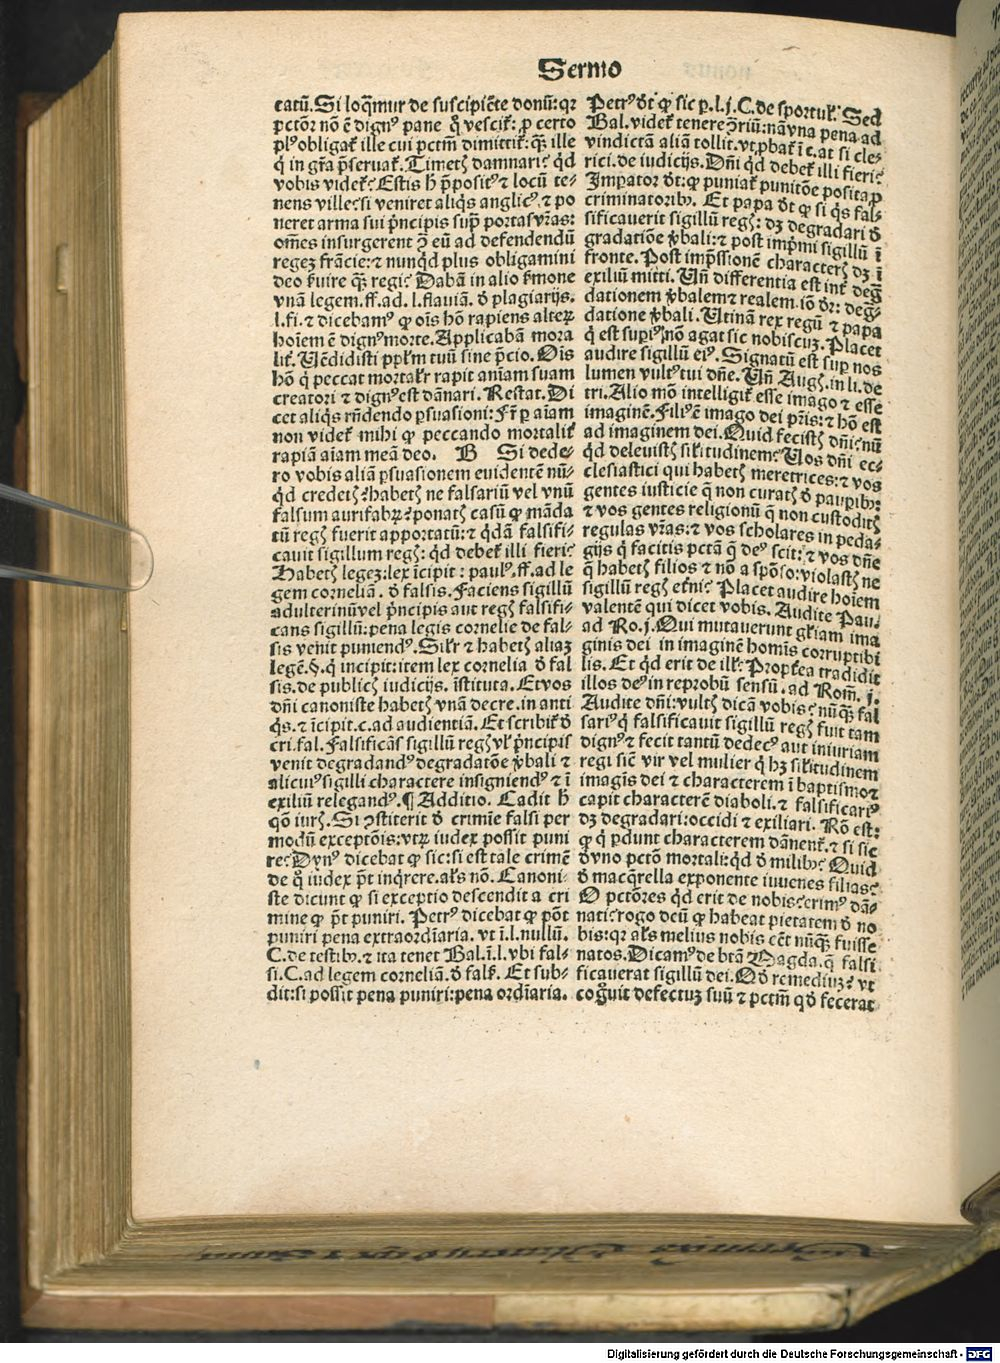 Sermo
catū. Si loq̄mur de suscipiēte donū: qꝛ
pctōr nō ē dignꝰ pane q̊ vescit̃: ꝓ certo
plꝰ obligat̃ ille cui pctm̄ dimittit̃: qꝫ ille
q̇ in gr̄a p̄seruat̃. Timetꝭ damnari? qd̄
vobis videt̃? Estis h̄ p̄positꝰ ⁊ locū te⸗
nens ville: si veniret aliq̇s anglicꝰ, ⁊ po
neret arma sui pn̄cipis sup̄ portas vr̄as:
om̄es insurgerent ꝯ̄ eū ad defendendū
regeꝫ frācie: ⁊ nunqd̄ plus obligamini
deo ẜuire qꝫ regi? Dabā in alio ẜmone
vnā legem. ff. ad. l. flauiā. ð plagiarijs.
l. fi. ⁊ dicebamꝰ ꝙ oīs hō rapiens alteꝝ
hoīem ē dignꝰ morte. Applicabā mora
lit̃. Uēdidisti pp̄lm tuū sine p̄cio. Oīs
hō q̇ peccat mortalr̄ rapit anīam suam
creatori ⁊ dignꝰ est dānari. Restat. Di
cet aliq̇s rn̄dendo ꝑsuasioni: Fr̄ ꝑ aīam
non videt̃ mihi ꝙ peccando mortalit̃
rapiā aīam meā deo. B Si dede⸗
ro vobis aliā ꝑsuasionem euidentē nū⸗
qd̄ credetꝭ? habetꝭ ne falsariū vel vnū
falsum aurifabꝝ? ponatꝭ casū ꝙ māda
tū regꝭ fuerit apportatū: ⁊ qd̄ā falsifi⸗
cauit sigillum regꝭ: qd̄ debet̃ illi fieri?
Habetꝭ legeꝫ: lex īcipit: paulꝰ. ff. ad le
gem corneliā. ð falsis. Faciens sigillū
adulterinū vel pn̄cipis aut regꝭ falsifi⸗
cans sigillū: pena legis cornelie de fal⸗
sis venit puniendꝰ. Silr̄ ⁊ habetꝭ aliaꝫ
legē. §. q̇ incipit: item lex cornelia ð fal
sis. de publicꝭ iudicijs. īstituta. Et vos
dn̄i canoniste habetꝭ vnā decre. in anti
q̇s. ⁊ īcipit. c. ad audientiā. Et scribit̃ ð
cri. fal. Falsificās sigillū regꝭ vl̄ pn̄cipis
venit degradandꝰ degradatōe v̇bali ⁊
alicuiꝰ sigilli charactere insigniendꝰ ⁊ ī
exiliū relegandꝰ. ¶ Additio. Cadit h̄
qō iurꝭ. Si ꝯstiterit ð crimīe falsi per
modū exceptōis: vtꝝ iudex possit puni
re? Dynꝰ dicebat ꝙ sic: si est tale crimē
de q̊ iudex p̄t inq̇rere. als̄ nō. Canoni⸗
ste dicunt ꝙ si exceptio descendit a cri
mine ꝙ p̄t puniri. Petrꝰ dicebat ꝙ pōt
puniri pena extraordīaria. vt ī. l. nullū.
C. de testibꝰ. ⁊ ita tenet Bal. ī. l. vbi fal⸗
si. C. ad legem corneliā. ð fals̄. Et sub⸗
dit: si possit pena puniri: pena ordīaria.
Petrꝰ dt̄ ꝙ sic ꝑ. l. j. C. de sportul̄. Sed
Bal. videt̃ tenere ꝯ̄riū: nā vna pena ad
vindictā aliā tollit. vt ꝓbat̃ ī c. at si cle⸗
rici. de iudicijs. Dn̄i qd̄ debet̃ illi fieri?
Imꝑator dt̄: ꝙ puniat̃ punitōe posita ꝓ
criminatoribꝰ. Et papa dt̄ ꝙ si q̇s fal⸗
sificauerit sigillū regꝭ: dꝫ degradari ð
gradatiōe v̇bali: ⁊ post imp̄mi sigillū ī
fronte. Post imp̄ssionē characterꝭ dꝫ ī
exiliū mitti. Un̄ differentia est int̃ degr̄a
dationem v̇balem ⁊ realem. iō dr̄: degr̄a⸗
datione v̇bali. Utinā rex regū ⁊ papa
q̇ est suꝑiꝰ, nō agat sic nobiscuꝫ. Placet
audire sigillū eiꝰ. Signatū est suꝑ nos
lumen vultꝰ tui dn̄e. Un̄ Augꝰ. in li. de
tri. Alio mō intelligit̃ esse imago ⁊ esse
imaginē. Filiꝰ ē imago dei pr̄is: ⁊ hō est
ad imaginem dei. Quid fecistꝭ dn̄i? nū
qd̄ deleuistꝭ sil̄itudinem? Uos dn̄i ec⸗
clesiastici qui habetꝭ meretrices: ⁊ vos
gentes iusticie q̄ non curatꝭ ð pauꝑibꝰ:
⁊ vos gentes religionū q̄ non custoditꝭ
regulas vr̄as: ⁊ vos scholares in peda⸗
gijs q̇ facitis pctā q̄ deꝰ scit: ⁊ vos dn̄e
q̄ habetꝭ filios ⁊ nō a spōso: violastꝭ ne
sigillū regꝭ etni? Placet audire hoīem
valentē qui dicet vobis. Audite Pau.
ad Ro. j. Qui mutauerunt gl̄iam ima
ginis dei in imaginē homīs corruptibi
lis. Et qd̄ erit de ill̄? Propt̃ea tradidit
illos deꝰ in reprobū sensū. ad Rom̄. j.
Audite dn̄i: vultꝭ dicā vobis? nūqꝫ fal
sariꝰ q̇ falsificauit sigillū regꝭ fuit tam
dignꝰ ⁊ fecit tantū dedecꝰ aut iniuriam
regi sic̄ vir vel mulier q̇ hꝫ sil̄itudinem
imagīs dei ⁊ characterem ī baptismo ⁊
capit characterē diaboli. ⁊ falsificariꝰ
dꝫ degradari: occidi ⁊ exiliari. Rō est:
ꝙ q̇ ꝑdunt characterem dānent̃. ⁊ si sic
ð vno pctō mortali: qd̄ ð milibꝰ? Quid
ð macq̄rella exponente iuuenes filias?
O pctōres qd̄ erit de nobis? erimꝰ dā⸗
nati? rogo deū ꝙ habeat pietatem ð no
bis: qꝛ als̄ melius nobis eēt nūqꝫ fuisse
natos. Dicamꝰ de btā Magda. q̄ falsi
ficauerat sigillū dei. Qd̄ remediuꝫ? vt
cog̊uit defectuꝫ suū ⁊ pctm̄ qd̄ fecerat
Digitalisierung gefördert durch die Deutsche Forschungsgemeinschaft - DFG